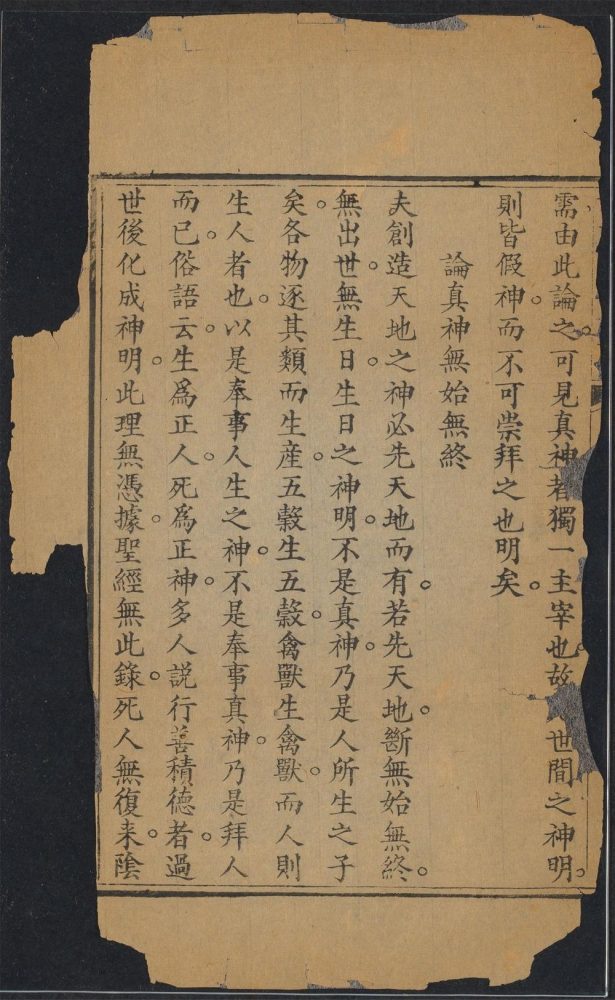 需由此論之。可見真神者獨一主宰也。故世間之神明。
則皆假神。而不可崇拜之也明矣。
論真神無始無終
夫創造天地之神必先天地而有。若先天地。斷無始無終。
無出世。無生日。生日之神明。不是真神。乃是人所生之子
矣。各物逐其類而生産。五穀生五穀。禽獸生禽獸。而人則
生人者也。以是奉事人生之神。不是奉事真神。乃是拜人
而已。俗語云。生爲正人。死爲正神。多人説行善積德者。過
世後化成神明。此理無憑據。聖經無此錄。死人無復来。陰